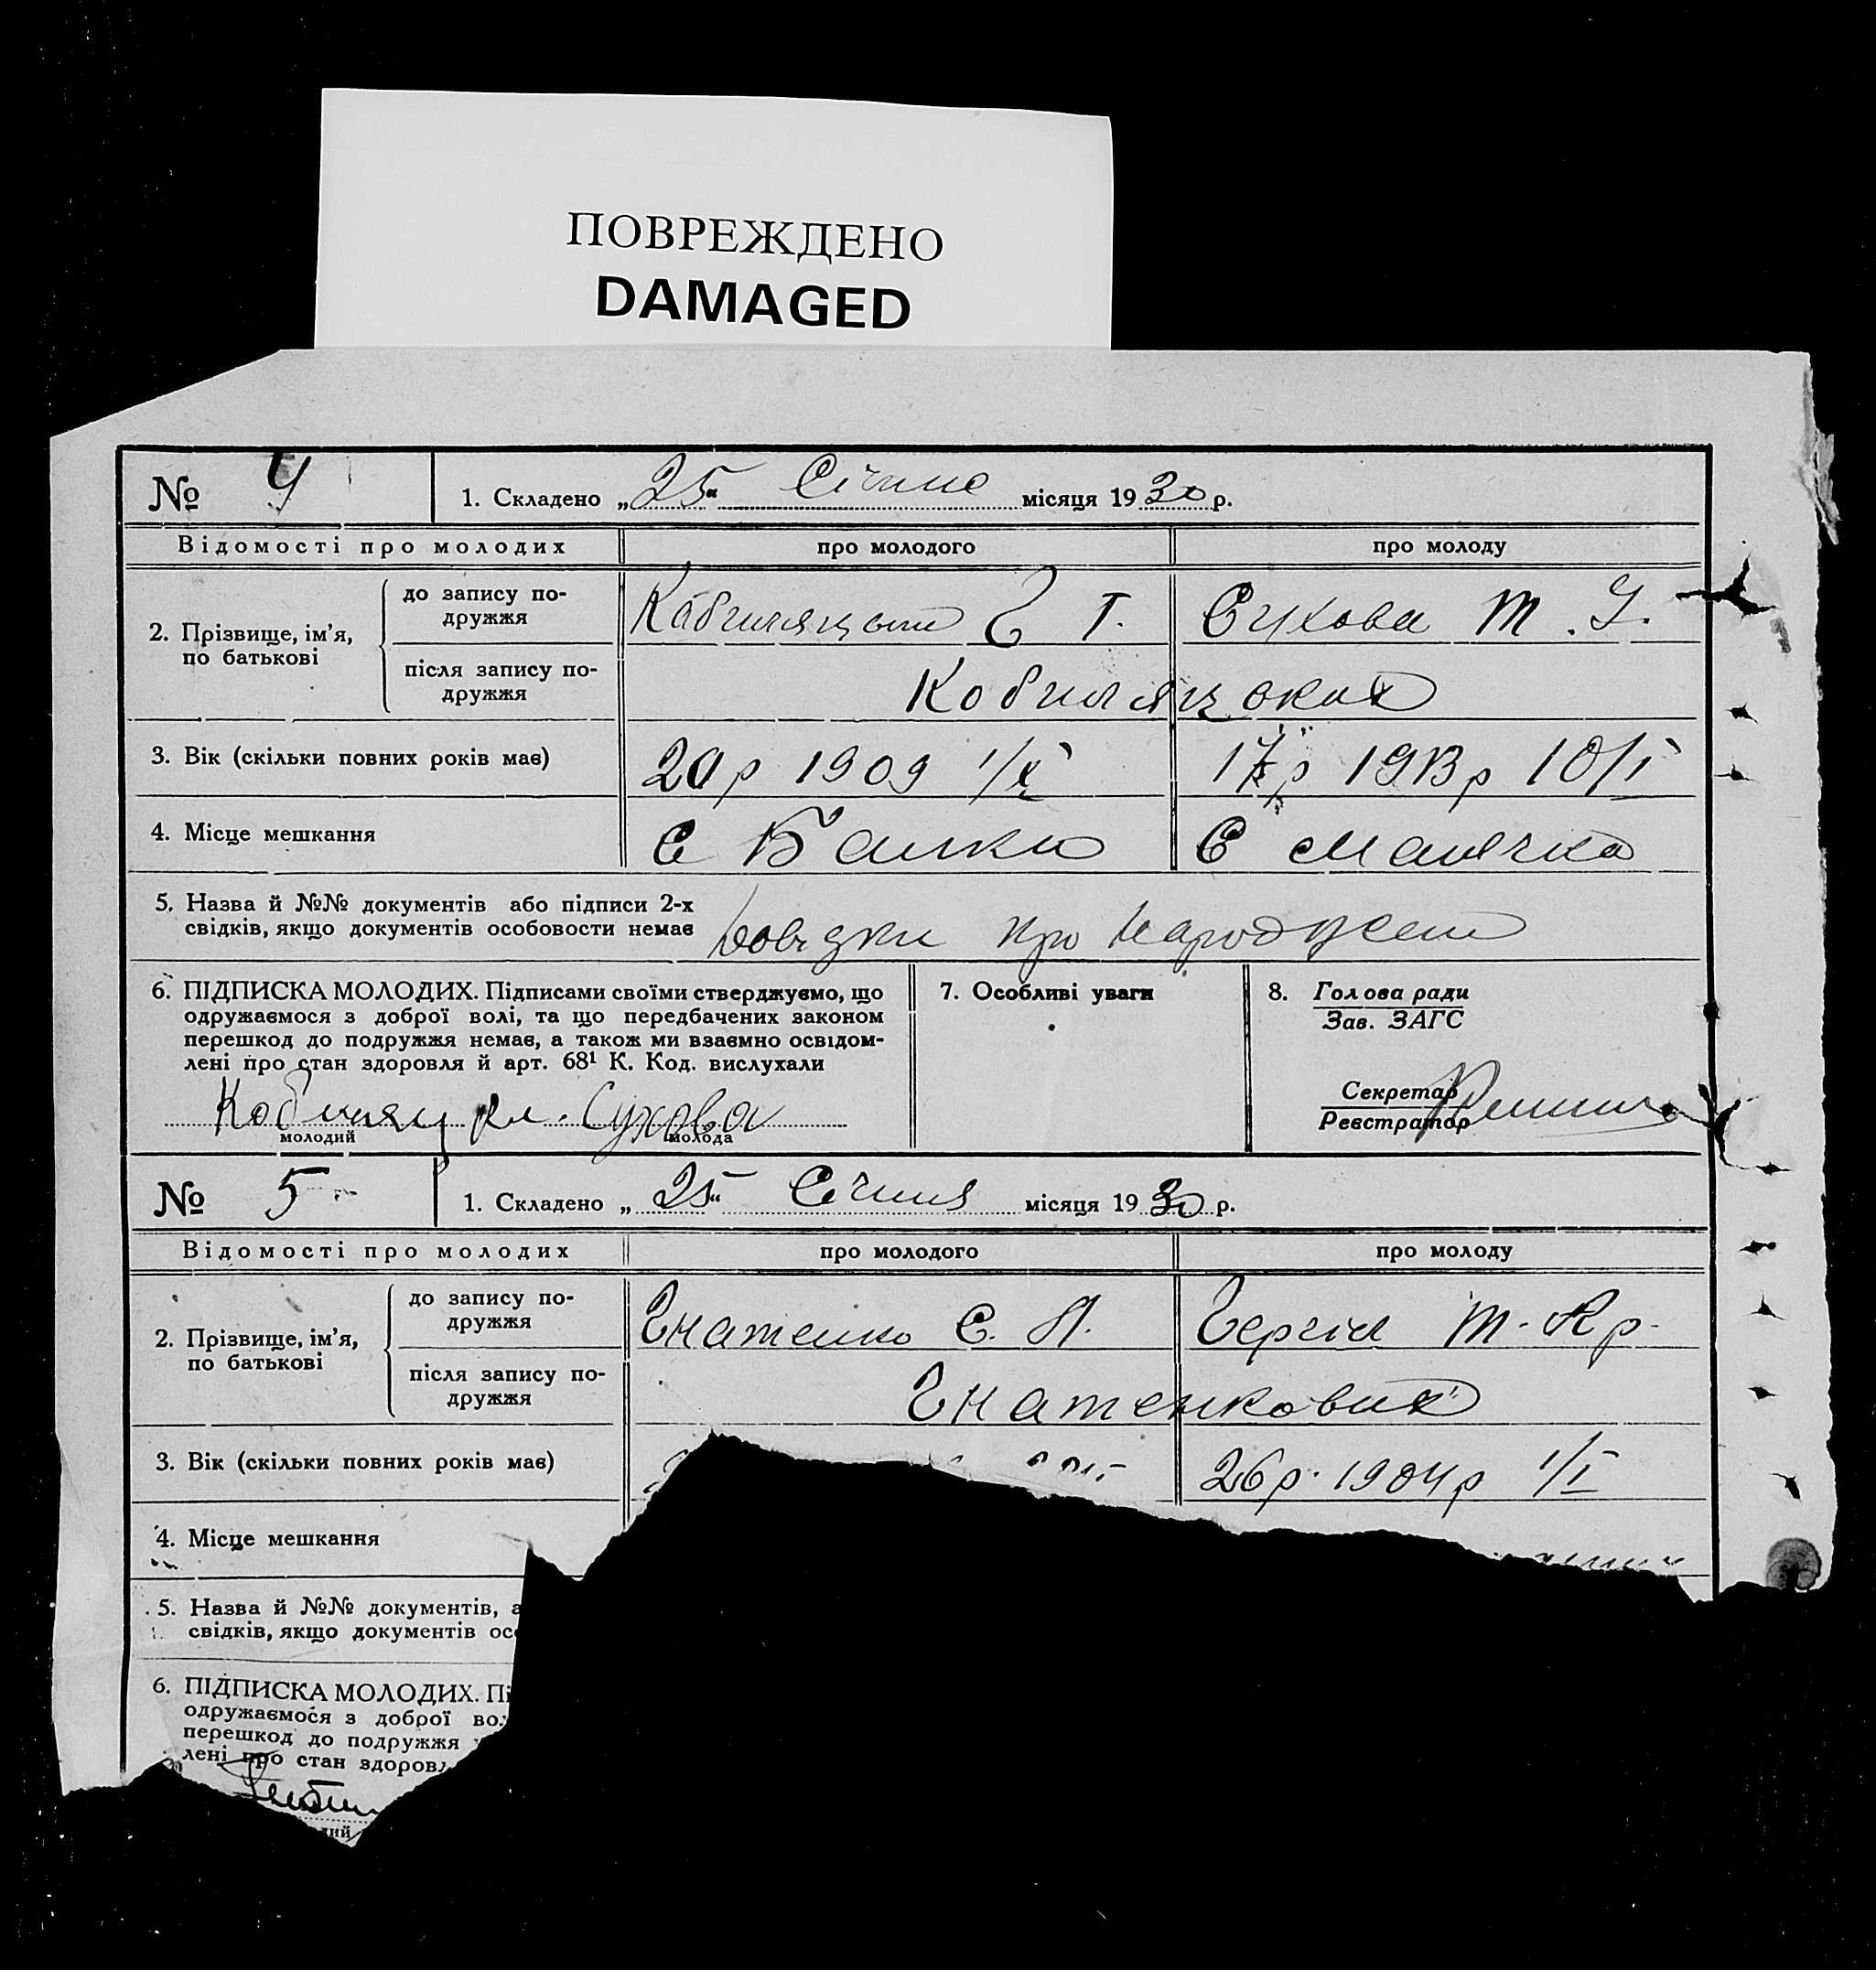 ПОВРЕЖДЕНО
DAMAGED
№ 4
1. Складено „25“ Січня місяця 1930 р.
Відомості про молодих
про молодого
про молоду
2. Прізвище, ім’я,
по батькові
до запису по-
дружжя
Сухова Т. І.
після запису по-
дружжя
Кобиляцьких
3. Вік (скільки повних років має)
20р 1909 1/X
17р 1913р 10/I
4. Місце мешкання
С Балки
С Маячка
5. Назва й №№ документів або підписи 2-х
свідків, якщо документів особовости немає
Довідки про народжен
6. ПІДПИСКА МОЛОДИХ. Підписами своїми стверджуємо, що
одружаємося з доброї волі, та що передбачених законом
перешкод до подружжя немає, а також ми взаємно освідом-
лені про стан здоровля й арт. 68¹ К. Код. вислухали
Сухова
молодий
молода
7. Особливі уваги
8. Голова ради
Зав. ЗАГС
Секретар
Реєстратор
№ 5
1. Складено „25“ Січня місяця 1930 р.
Відомості про молодих
про молодого
про молоду
2. Прізвище, ім’я,
по батькові
до запису по-
дружжя
Гнатенко С. П.
Т. Гр.
після запису по-
дружжя
Гнатенкових
3. Вік (скільки повних років має)
26р. 1904р 1/I
4. Місце мешкання
5. Назва й №№ документів, а
свідків, якщо документів ос
6. ПІДПИСКА МОЛОДИХ. Пі
одружаємося з доброї вол
перешкод до подружжя
лені про стан здоровл